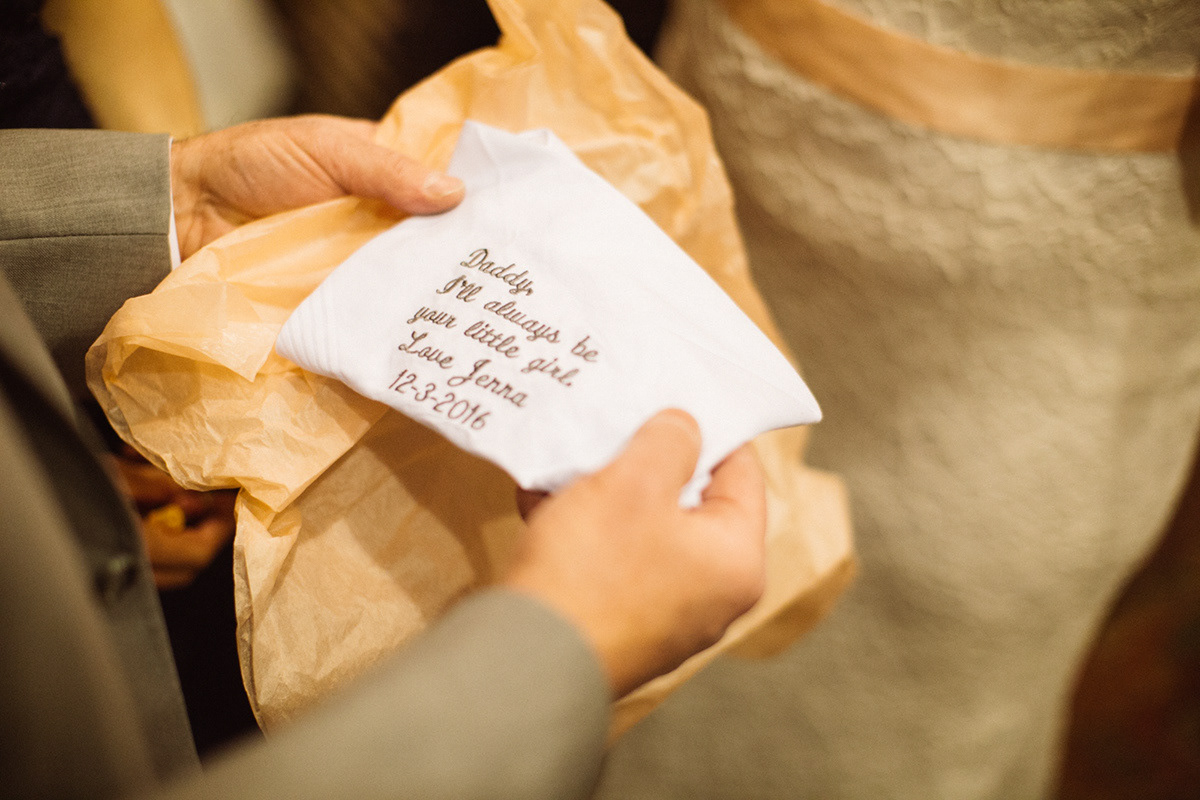 Daddy,
I'll always be
your little girl.
Love Jenna
12-3-2016